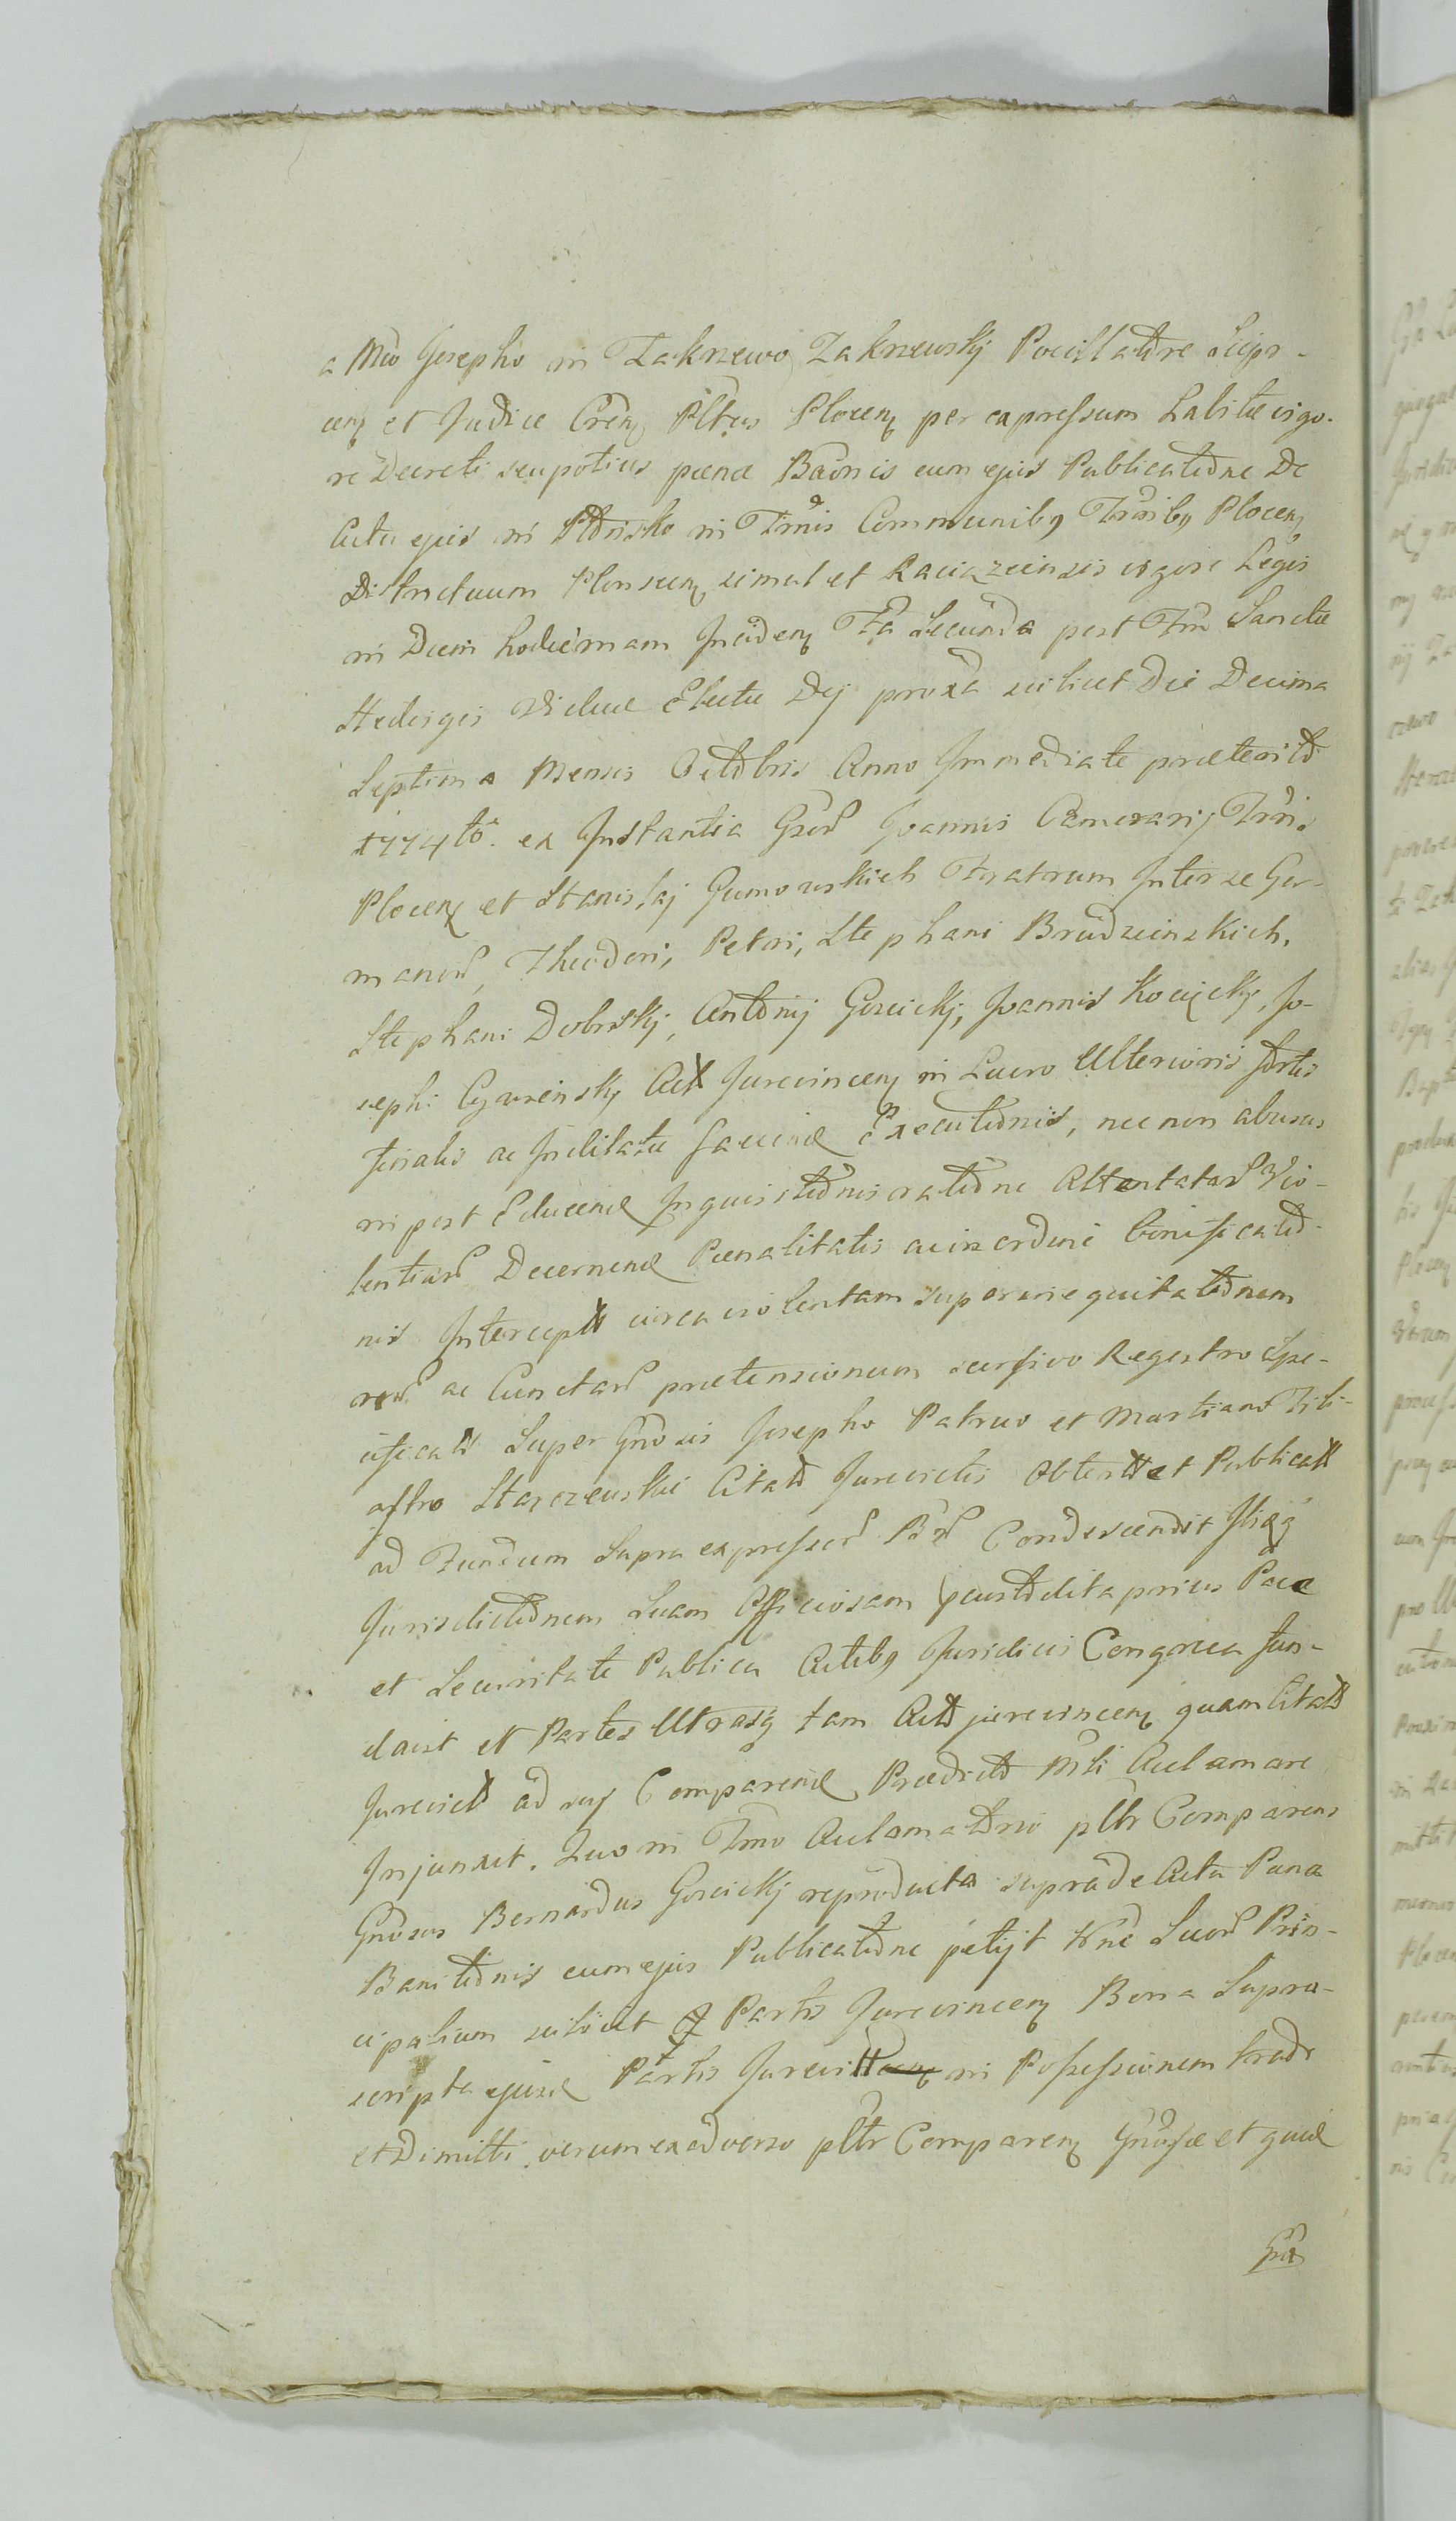 a Mco Josepho in Zakrzewo Zakrzewskj Pocillatore Sierpr-
cen et Judice Cren Pltus Plocen per expressum Labitae vigo-
re Decreti seu potius paenae Baonis cum ejus Publicatione De
Actu ejus in Plonsko in Trmis Communibq Trribq Plocen
Districtuum Plonscen simul et Raciazeiensis vigore Legis
in Diem hodiernam Inciden Fa Secunda post Fm Sanctae
Hedvigis Viduae Electae Dej proxa scilicet Die Decima
Septima Mensis Octobris Anno Immediate praeteriti
1774to. ex Instantia Gsor Joannis Camerarij Trris
Plocen et Stanislaj Gumowskich Fratrum Inter se Ger-
manor, Theodori, Petri, Stephani Brudzinskich,
Stephani Dobrskj, Antonij Goscickj, Joannis Kocięckj, Jo-
sephi Cywinskj Act Jurevincen in Lucro Ulterioris
ac Sacciend Executionis, nec non abusus
in post Educend Inquisitionis ratione Attentatar Vio-
lentiar Decernend Paenalitatis ac in ordine bonificatio-
nis Intercept circa violentam superinequitationem
ac Cunctar praetensionum scursivo Regestro Spe-
cificat Super Gnosis Josepho Patruo et Martiano Fili-
astro Starczewskie Citat Jurevictis Obtent et Publicat
ad Fundum Supra expressor Bor Condescendit Ibiq
Jurisdictionem Suam Officiosam custodita prius Pace
et Securitate Publica Actibq Juridicis Congrua fun-
davit et Partes Utrasq tam Act jurevincen quam Citat
Jurevict ad Comparend Praedicto Mrli Aclamare
Injunxit. Quo in Trmo Aclamatorio pltr Comparens
Gnosus Bernardus Goscickj reproducta supra de Actu Paena
Banitionis cum ejus Publicatione petijt Nne Suor Prin-
cipalium scilicet Partis Jurevincen Bona Supra-
scripta ejusd Partis Jurevict in Possessionem tradi
et Dimitti, verum ex adverso pltr Comparen Gnosae et quid
Gna